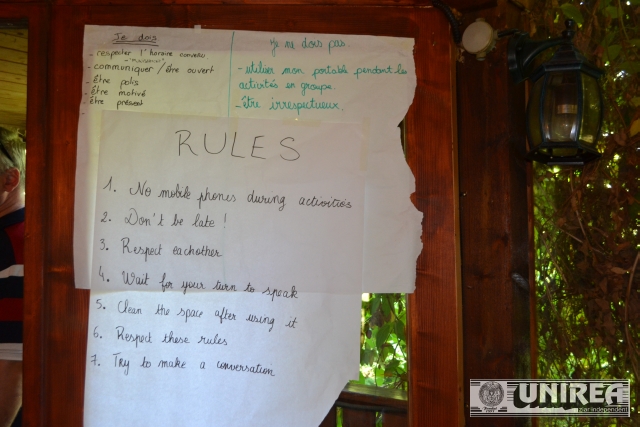 Je dois
- respecter l'horaire convenu
- communiquer / être ouvert
- être polis
- être motivé
- être présent
Je ne dois pas
- utiliser mon portable pendant les
activités en groupe.
- être irrespectueux.
RULES
1. No mobile phones during activities
2. Don't be late !
3. Respect eachother
4. Wait for your turn to speak
5. Clean the space after using it
6. Respect these rules
7. Try to make a conversation
UNIREA
ziar independent